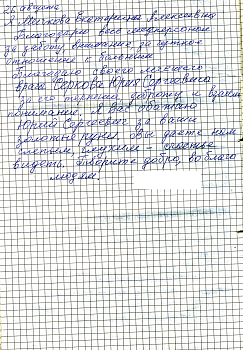 26 августа
Я Мягкова Екатерина Алексеевна
Благодарю весь медперсонал
за заботу внимание за чуткое
отношение к больным
Благодарю своего лечащего
врача Серкова Юрия Сергеевича
за его терпение доброту и взаимо
понимание. Я Вас обожаю
Юрий Сергеевич за ваши
золотые руки вы даете нам
слепым, глухим - счастье
видеть, Творите добро, во благо
людям.